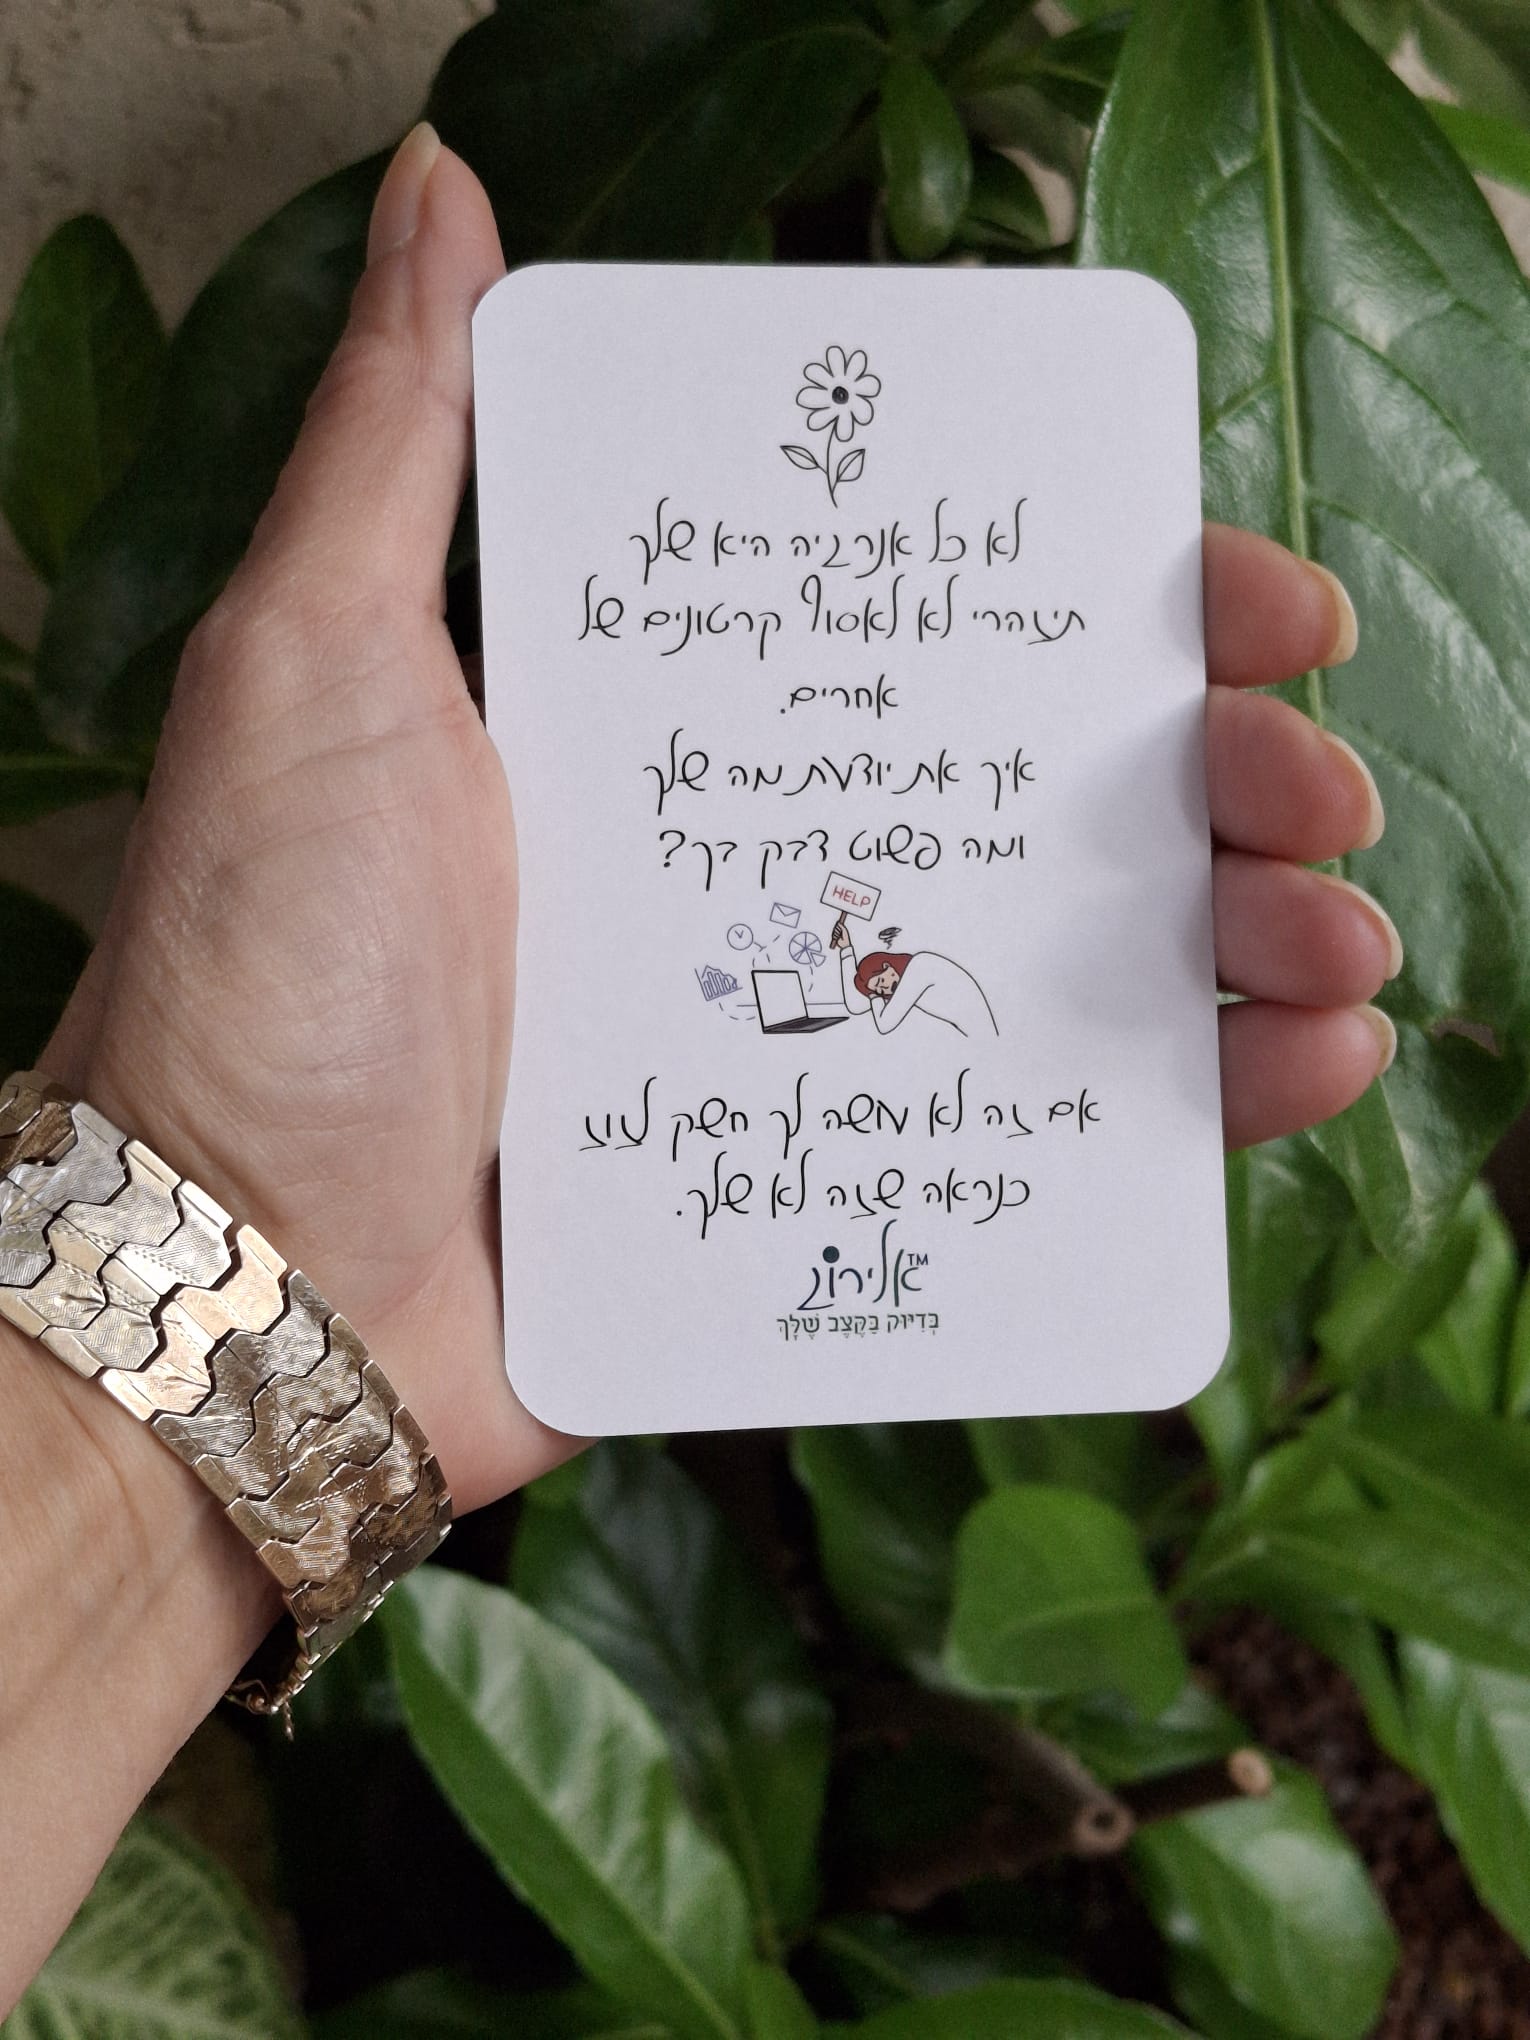 לא כל אנרגיה היא שלך
תיזהרי לא לאסוף קרטונים של
אחרים.
איך את יודעת מה שלך
ומה פשוט דבק בך?
HELP
אם זה לא עושה לך חשק לזוז
כנראה שזה לא שלך.
אלירוז™
בְּדִיּוּק בַּקֶּצֶב שֶׁלָּךְ